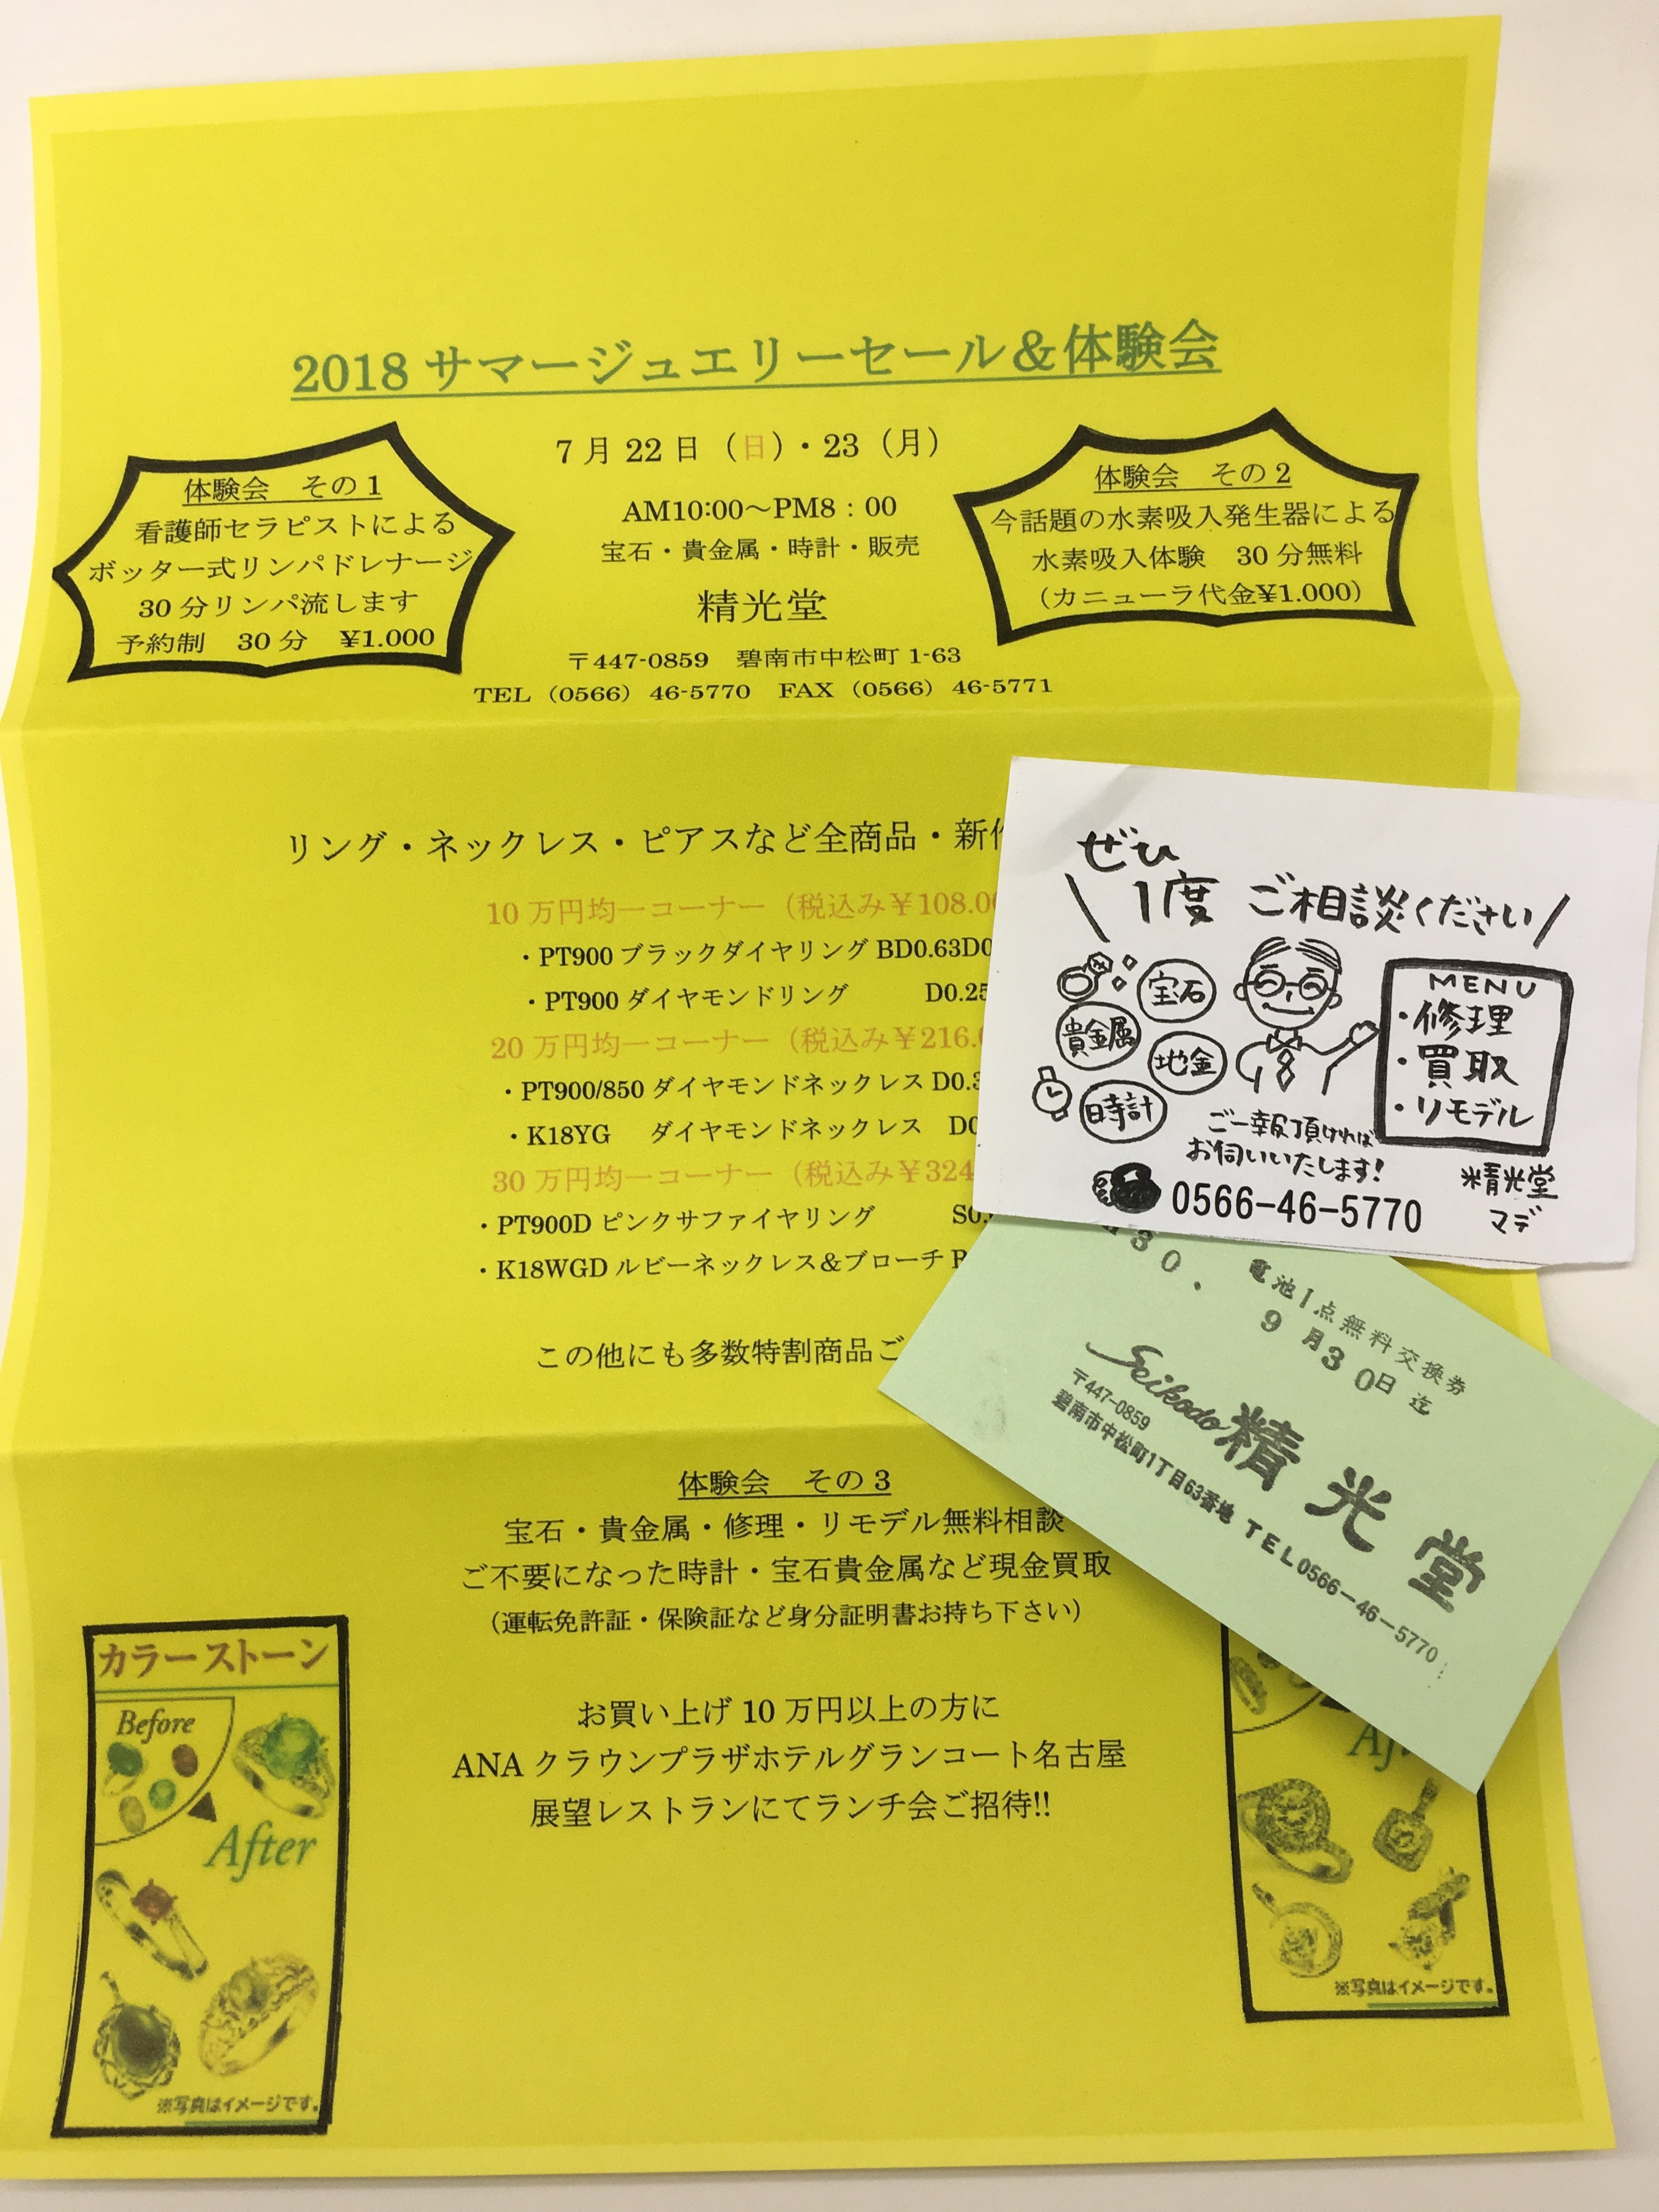 2018 サマージュエリーセール＆体験会
7 月 22 日（日）・23（月）
AM10:00～PM8：00
宝石・貴金属・時計・販売
精光堂
〒447-0859 碧南市中松町 1-63
TEL（0566）46-5770 FAX（0566）46-5771
体験会 その 1
看護師セラピストによる
ボッター式リンパドレナージ
30 分リンパ流します
予約制 30 分 ¥1.000
体験会 その 2
今話題の水素吸入発生器による
水素吸入体験 30 分無料
（カニューラ代金¥1.000）
リング・ネックレス・ピアスなど全商品・新作
10 万円均一コーナー（税込み￥108.00
・PT900 ブラックダイヤリング BD0.63D0
・PT900 ダイヤモンドリング D0.25
20 万円均一コーナー（税込み￥216.0
・PT900/850 ダイヤモンドネックレス D0.3
・K18YG ダイヤモンドネックレス D0
30 万円均一コーナー（税込み￥324
・PT900D ピンクサファイヤリング S0.
・K18WGD ルビーネックレス&ブローチ
この他にも多数特割商品ご
体験会 その 3
宝石・貴金属・修理・リモデル無料相談
ご不要になった時計・宝石貴金属など現金買取
（運転免許証・保険証など身分証明書お持ち下さい）
お買い上げ 10 万円以上の方に
ANA クラウンプラザホテルグランコート名古屋
展望レストランにてランチ会ご招待!!
カラーストーン
Before
After
※写真はイメージです。
※写真はイメージです。
ぜひ
1度 ご相談ください
宝石
貴金属
地金
時計
MENU
・修理
・買取
・リモデル
ご一報頂ければ
お伺いいたします!
0566-46-5770
精光堂
マデ
30.
電池1点無料交換券
9月30日迄
Seikodo 精光堂
〒447-0859
碧南市中松町1丁目63番地 TEL0566-46-5770